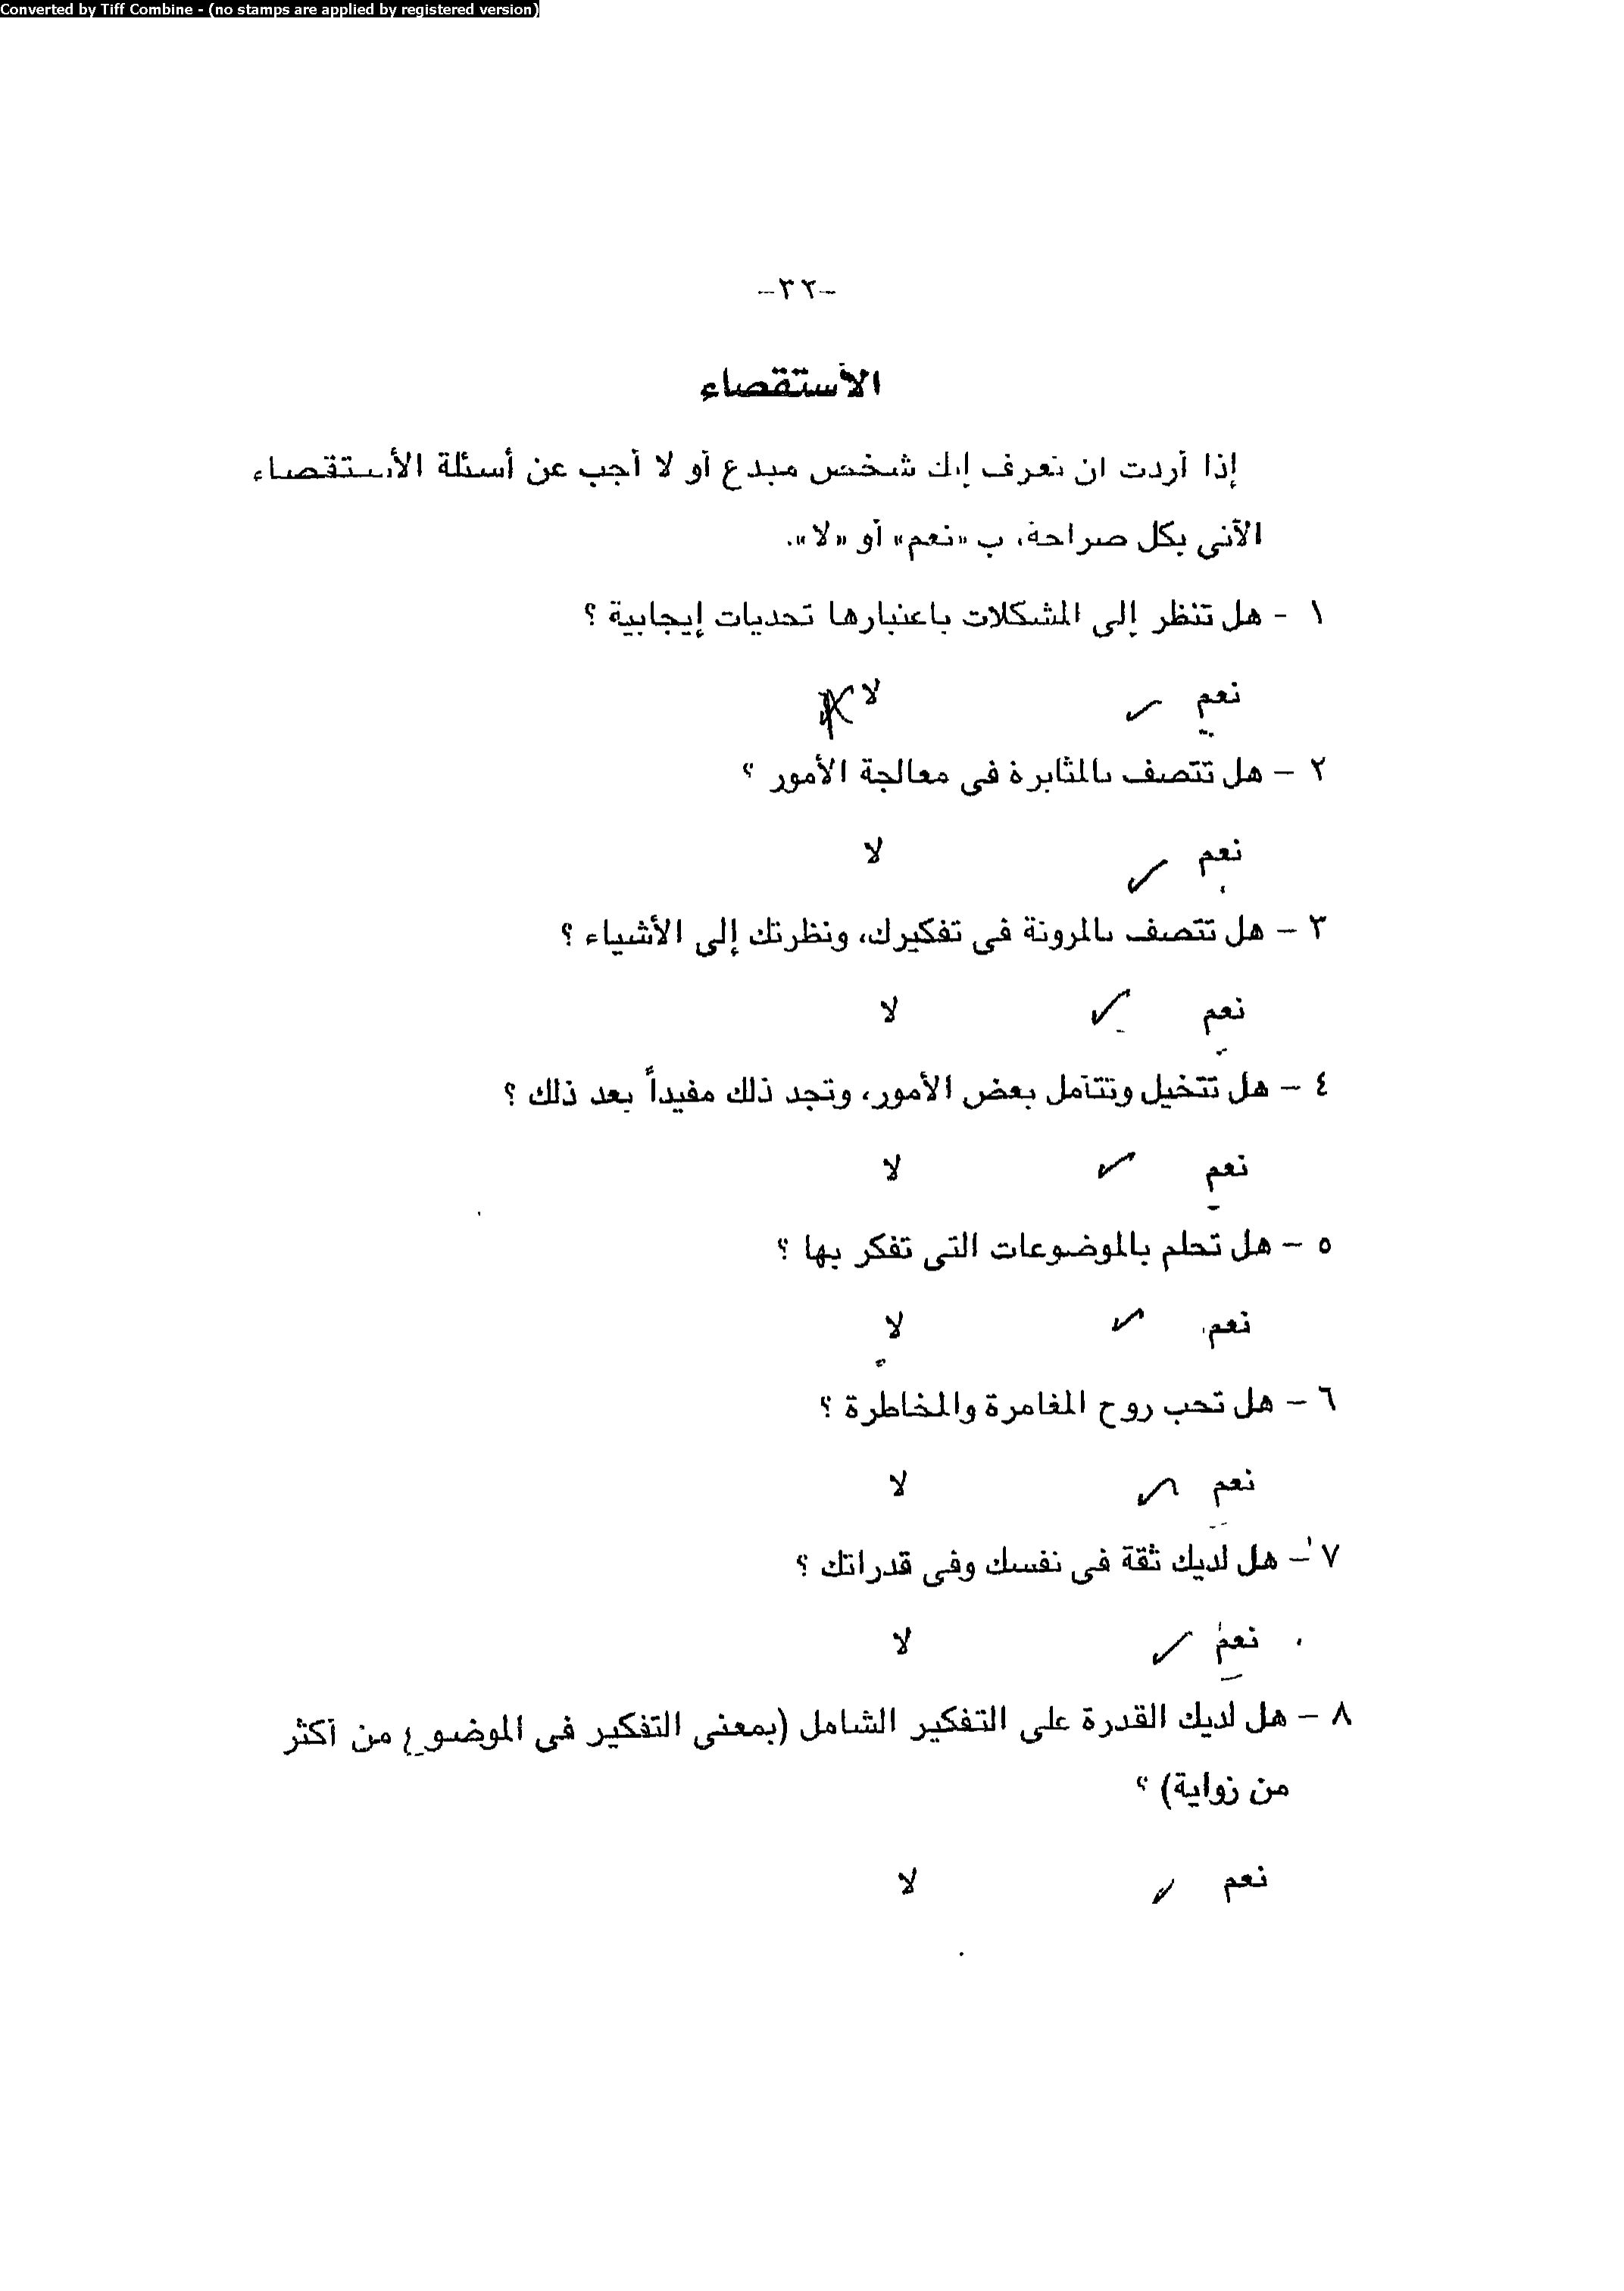 Converted by Tiff Combine - (no stamps are applied by registered version)
-٣٢-
الأستقصاء
إذا أردت ان تعرف إنك شخص مبدع أو لا أجب عن أسئلة الأستقصاء
الآتى بكل صراحة، ب «نعم» أو «لا».
١ - هل تنظر إلى المشكلات باعتبارها تحديات إيجابية ؟
نعم ✓ لا
٢ - هل تتصف بالمثابرة فى معالجة الأمور ؟
نعم ✓ لا
٣ - هل تتصف بالمرونة فى تفكيرك، ونظرتك إلى الأشياء ؟
نعم ✓ لا
٤ - هل تتخيل وتتأمل بعض الأمور، وتجد ذلك مفيداً بعد ذلك ؟
نعم ✓ لا
٥ - هل تحلم بالموضوعات التى تفكر بها ؟
نعم ✓ لا
٦ - هل تحب روح المغامرة والمخاطرة ؟
نعم ✓ لا
٧ - هل لديك ثقة فى نفسك وفى قدراتك ؟
نعم ✓ لا
٨ - هل لديك القدرة على التفكير الشامل (بمعنى التفكير فى الموضوع من أكثر
من زواية) ؟
نعم ✓ لا